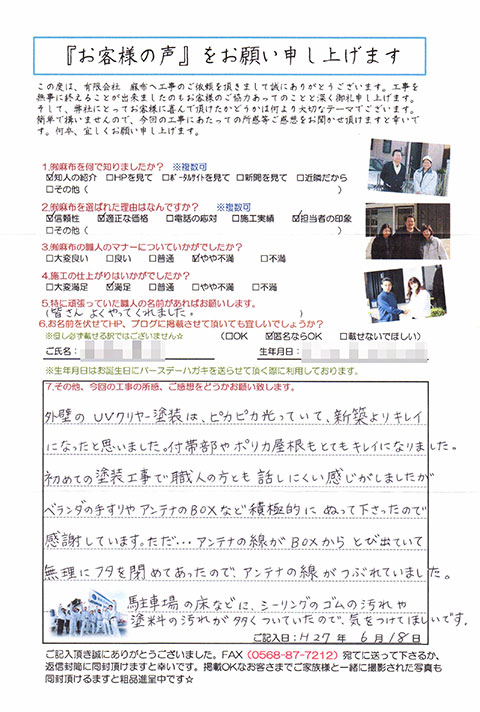 『お客様の声』をお願い申し上げます
この度は、有限会社 麻布へ工事のご依頼を頂きまして誠にありがとうございます。工事を
無事に終えることが出来ましたのもお客様のご協力あってのことと深く御礼申し上げます。
そして、弊社にとってお客様に喜んで頂けたかどうかは何より大切なテーマでございます。
簡単で構いませんので、今回の工事にあたっての所感等ご感想をお聞かせ頂けますと幸いで
す。何卒、宜しくお願い申し上げます。
1.㈲麻布を何で知りましたか? ※複数可
☑知人の紹介 □HPを見て □ポータルサイトを見て □新聞を見て □近隣だから
□その他( )
2.㈲麻布を選ばれた理由はなんですか? ※複数可
☑信頼性 ☑適正な価格 □電話の応対 □施工実績 ☑担当者の印象
□その他( )
3.㈲麻布の職人のマナーについていかがでしたか?
□大変良い □良い □普通 ☑やや不満 □不満
4.施工の仕上がりはいかがでしたか?
□大変満足 ☑満足 □普通 □やや不満 □不満
5.特に頑張っていた職人の名前があればお願いします。
(皆さん よくやってくれました。 )
6.お名前を伏せてHP、ブログに掲載させて頂いても宜しいでしょうか?
※但し必ず載せる訳ではございません☆ (□OK ☑匿名ならOK □載せないでほしい)
ご氏名: 生年月日:
※生年月日はお誕生日にバースデーハガキを送らせて頂く際に利用しております。
7.その他、今回の工事の所感、ご感想をどうかお願い致します。
外壁のUVクリヤー塗装は、ピカピカ光っていて、新築よりキレイ
になったと思いました。付帯部やポリカ屋根もとてもキレイになりました。
初めての塗装工事で職人の方とも話しにくい感じがしましたが
ベランダの手すりやアンテナのBOXなど積極的にぬって下さったので
感謝しています。ただ…アンテナの線がBOXからとび出ていて
無理にフタを閉めてあったので、アンテナの線がつぶれていました。
駐車場の床などに、シーリングのゴムの汚れや
塗料の汚れが多くついていたので、気をつけてほしいです。
ご記入日:H27 年 6 月 18 日
ご記入頂き誠にありがとうございました。FAX(0568-87-7212)宛てに送って下さるか、
返信封筒に同封頂けますと幸いです。掲載OKなお客さまでご家族様と一緒に撮影された写真も
同封頂けるますと粗品進呈中です☆